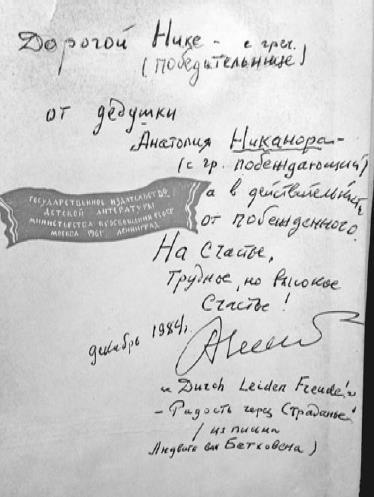 Дорогой Нике – с греч.
(победительнице)
от дедушки
Анатолия Никанора –
(с гр. побеждающий)
а в действительн.
от побежденного.
ГОСУДАРСТВЕННОЕ ИЗДАТЕЛЬСТВО
ДЕТСКОЙ ЛИТЕРАТУРЫ
МИНИСТЕРСТВА ПРОСВЕЩЕНИЯ РСФСР
МОСКВА 1961 ЛЕНИНГРАД
На Счастье,
Трудное, но высокое
Счастье!
декабрь 1984г.
"Durch Leiden Freude!"
– Радость через Страданье!
(из письма
Людвига ван Бетховена)